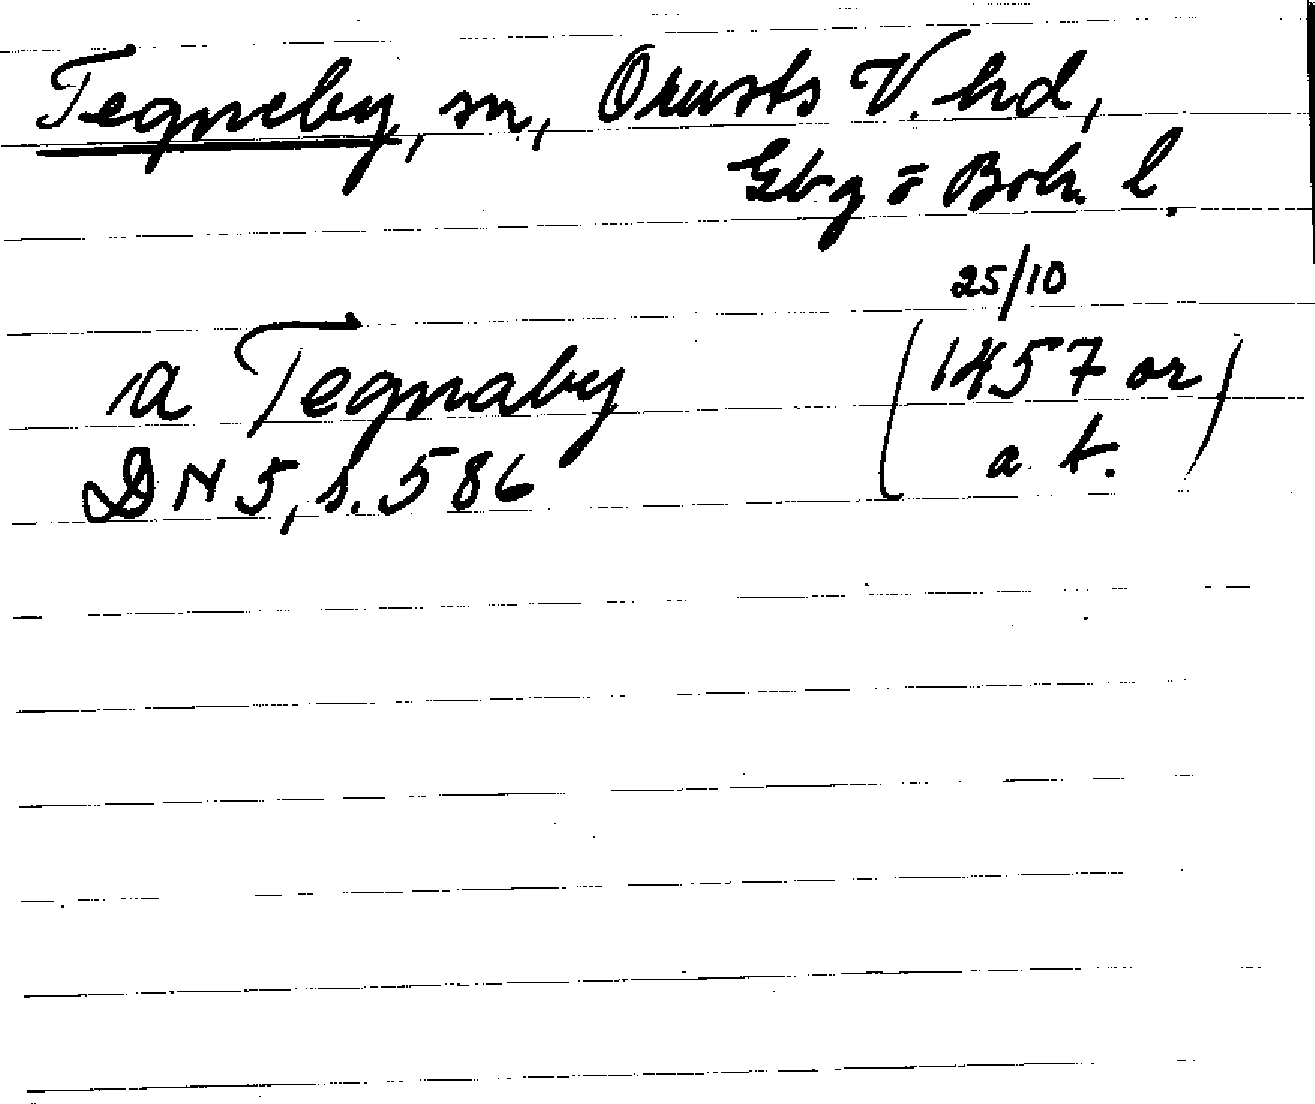 Tegneby, sn, Orusts V. hd,
Gbg o Boh. l.
25/10
a Tegnaby (1457 or
DN 5, s. 586 a. t.)